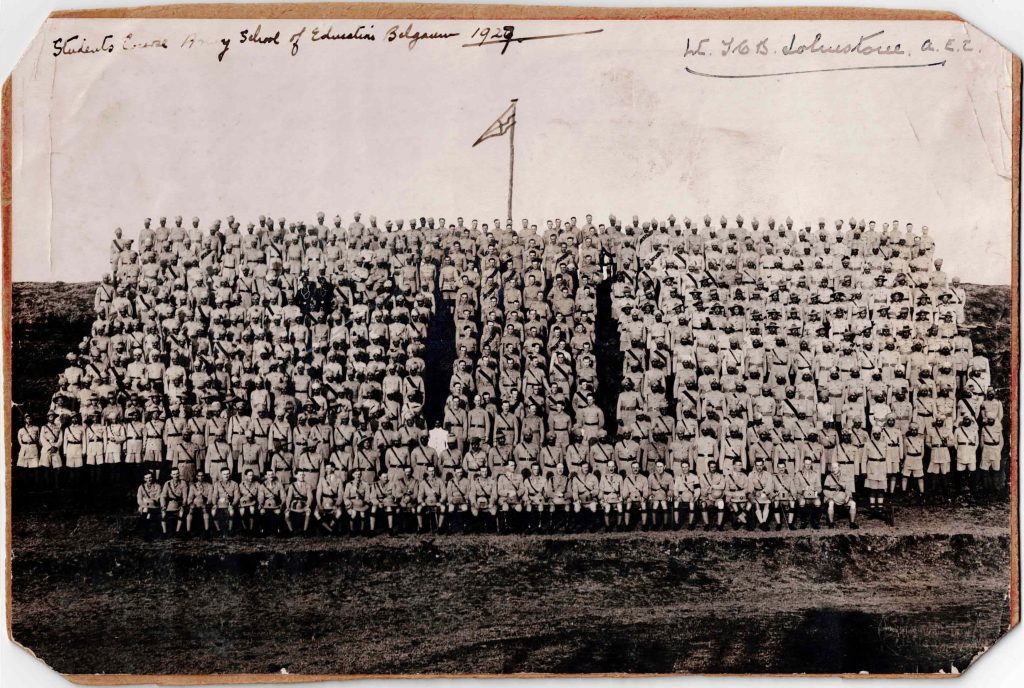 Students Course Army School of Education Belgaum 1927
Lt. T C B Johnstone. A.E.C.